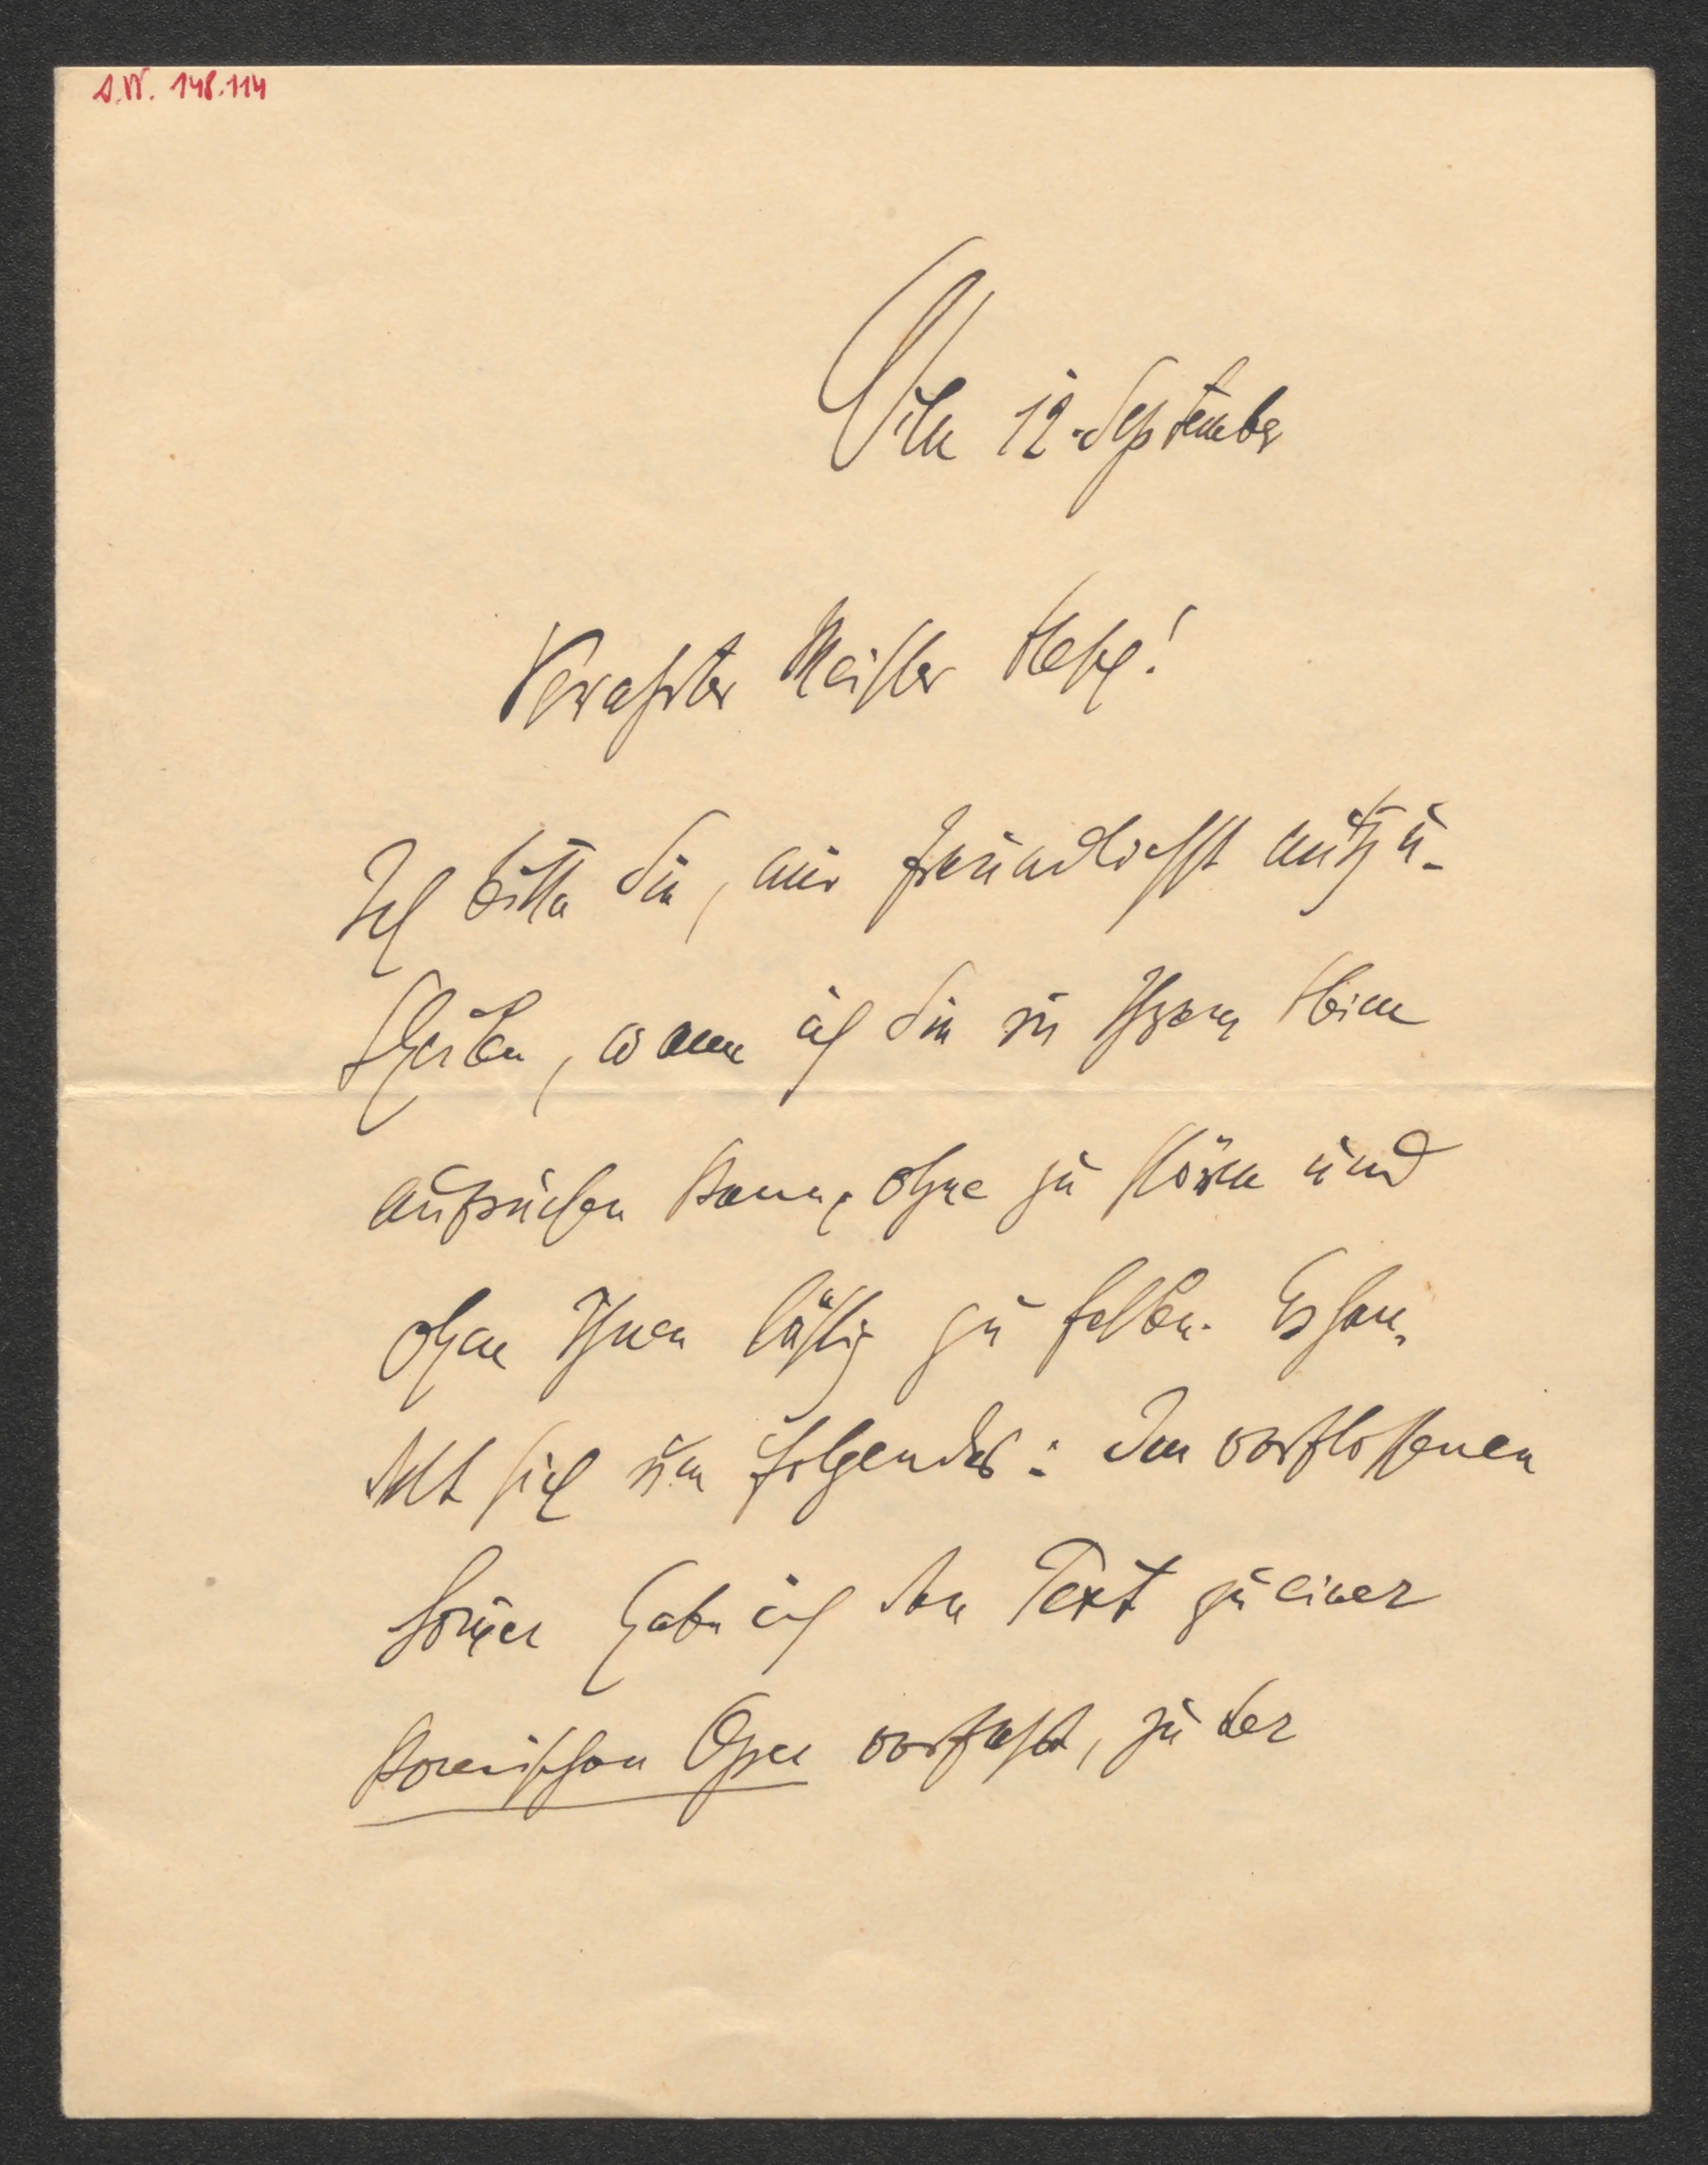 A.N. 148.114
Wien 12. September
Verehrter Meister
Ich bitte Sie, mir freundlichst mitzu-
theilen, wann ich Sie in Ihrem Heim
aufsuchen kann, ohne zu stören und
ohne Ihnen lästig zu fallen. Es han-
delt sich um folgendes: Im verflossenen
Sommer habe ich den Text zu einer
komischen Oper verfasst, zu der